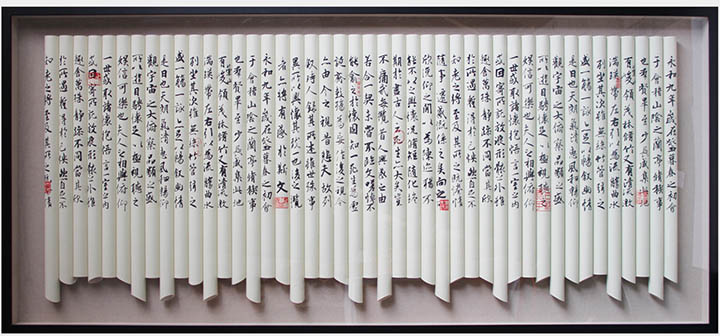 永和九年歲在癸丑暮春之初會
于會稽山陰之蘭亭脩稧事
也羣賢畢至少長咸集此地
領茂林脩竹又有清流激
湍暎帶左右引以為流觴曲水
列坐其次雖無絲竹管弦之
盛一觴一詠亦足以暢敘幽情
是日也天朗氣清惠風和暢仰
觀宇宙之大俯察品類之盛
所以遊目騁懷足以極視聽之
娛信可樂也夫人之相與俯仰
一世或取諸懷抱悟言一室之內
或因寄所託放浪形骸之外雖
趣舍萬殊靜躁不同當其欣
於所遇暫得於己快然自足不
知老之將至及其所之既惓情
隨事遷感慨係之矣向之
欣俛仰之閒以為陳迹猶不
能不以之興懷況脩短隨化終
期於盡古人云死生亦大矣豈
不痛哉每攬昔人興感之由
若合一契未嘗不臨文嗟悼不
能喻之於懷固知一死生為虛
誕齊彭殤為妄作後之視今
亦由今之視昔悲夫故列
敘時人錄其所述雖世殊事
異所以興懷其致一也後之攬
者亦將有感於斯文
于會稽山陰之蘭亭脩稧事
也羣賢畢至少長咸集此地
領茂林脩竹又有清流激
湍暎帶左右引以為流觴曲水
列坐其次雖無絲竹管弦之
盛一觴一詠亦足以暢敘幽情
是日也天朗氣清惠風和暢仰
觀宇宙之大俯察品類之盛
所以遊目騁懷足以極視聽之
娛信可樂也夫人之相與俯仰
一世或取諸懷抱悟言一室之內
或因寄所託放浪形骸之外雖
趣舍萬殊靜躁不同當其欣
於所遇暫得於己快然自足不
知老之將至及其所之既惓情